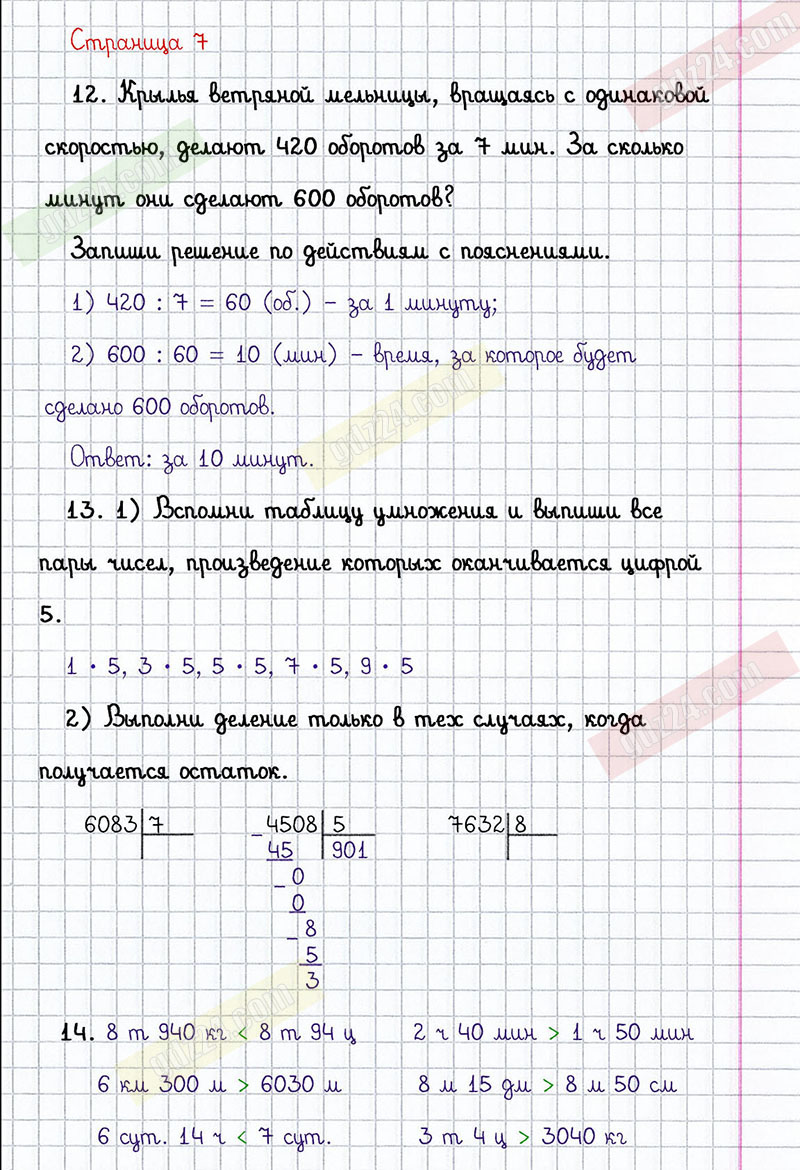 Страница 7
12. Крылья ветряной мельницы, вращаясь с одинаковой
скоростью, делают 420 оборотов за 7 мин. За сколько
минут они сделают 600 оборотов?
Запиши решение по действиям с пояснениями.
1) 420 : 7 = 60 (об.) – за 1 минуту;
2) 600 : 60 = 10 (мин) – время, за которое будет
сделано 600 оборотов.
Ответ: за 10 минут.
13. 1) Вспомни таблицу умножения и выпиши все
пары чисел, произведение которых оканчивается цифрой
5.
1 · 5, 3 · 5, 5 · 5, 7 · 5, 9 · 5
2) Выполни деление только в тех случаях, когда
получается остаток.
6083 7 – 4508 5 7632 8
45 901
– 0
0
– 8
5
3
14. 8 т 940 кг < 8 т 94 ц 2 ч 40 мин > 1 ч 50 мин
6 км 300 м > 6030 м 8 м 15 дм > 8 м 50 см
6 сут. 14 ч < 7 сут. 3 т 4 ц > 3040 кг
gdz24.com
gdz24.com
gdz24.com
gdz24.com
gdz24.com